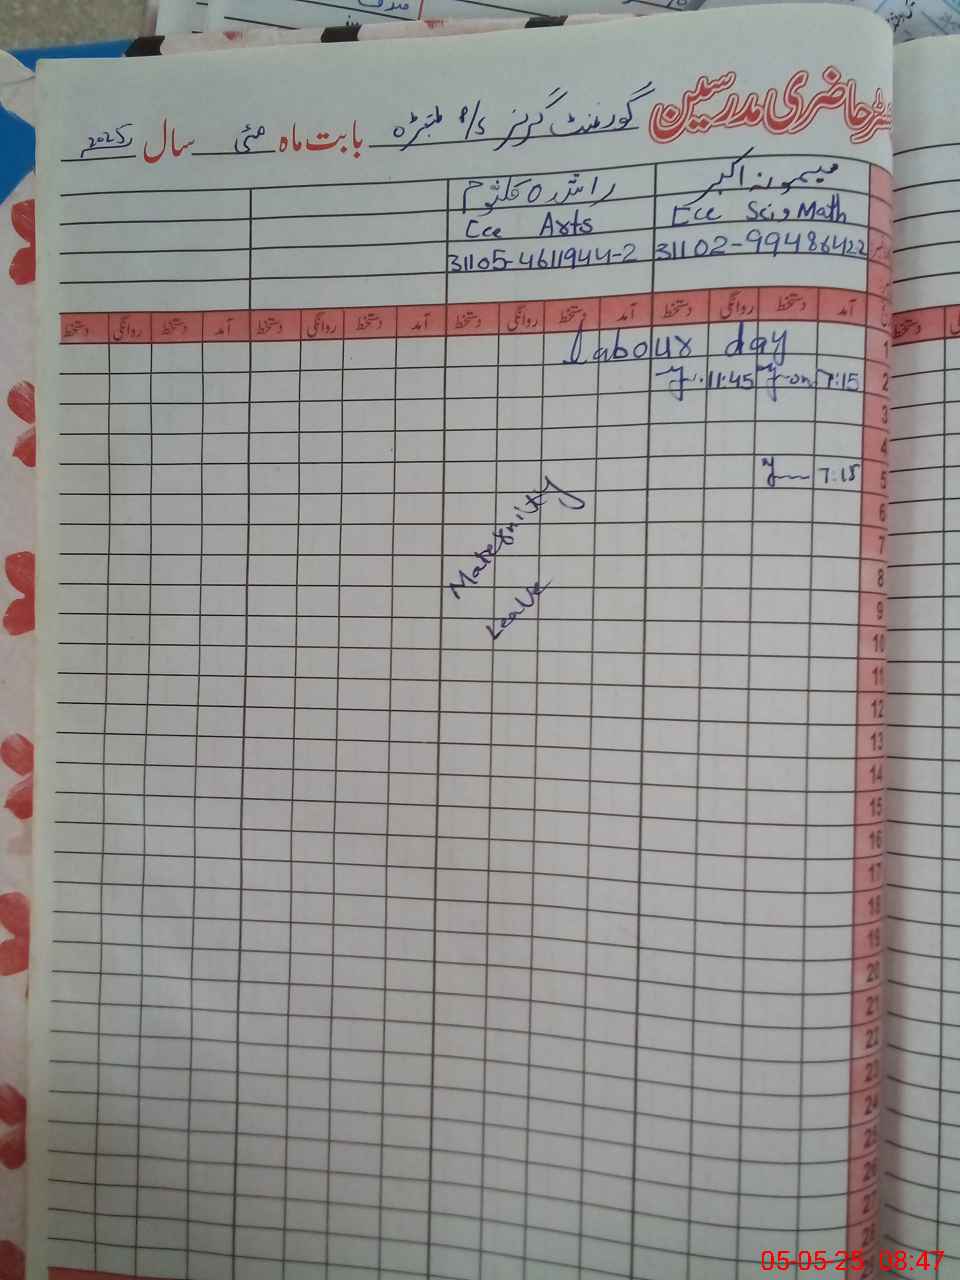 رجسٹر حاضری مدرسین گورنمنٹ گرلز P/S بابت ماہ مئی سال 2025
میمونہ اکبر راشدہ کلثوم
Ece Sci, Math Ece Arts
31102-99486422 31105-4611944-2
آمد دستخط روانگی دستخط آمد دستخط روانگی دستخط آمد دستخط روانگی دستخط آمد دستخط روانگی دستخط
1 Labour day
2 7:15 11:45
3
4
5 7:15
6
7
8
Maternity
Leave
9
10
11
12
13
14
15
16
17
18
19
20
21
22
23
24
25
26
27
28
05-05-25 08:47